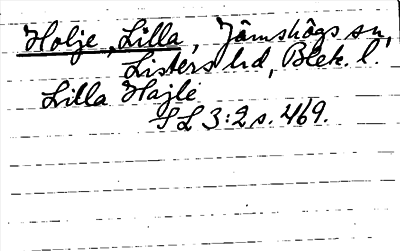 Holje, Lilla, Jämshögs sn,
Listers hd, Blek. l.
Lilla Hajle
SL 3:2 s. 469.